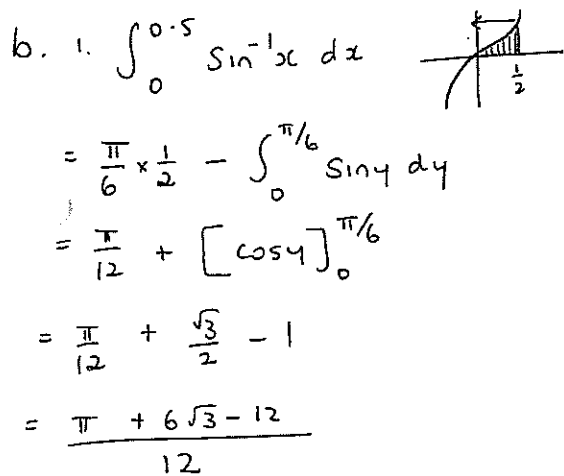 b. 1. ∫₀^0.5 sin⁻¹x dx
1/2
= π/6 × 1/2 - ∫₀^π/6 sin y dy
= π/12 + [cos y]₀^π/6
= π/12 + √3/2 - 1
= π + 6√3 - 12 / 12